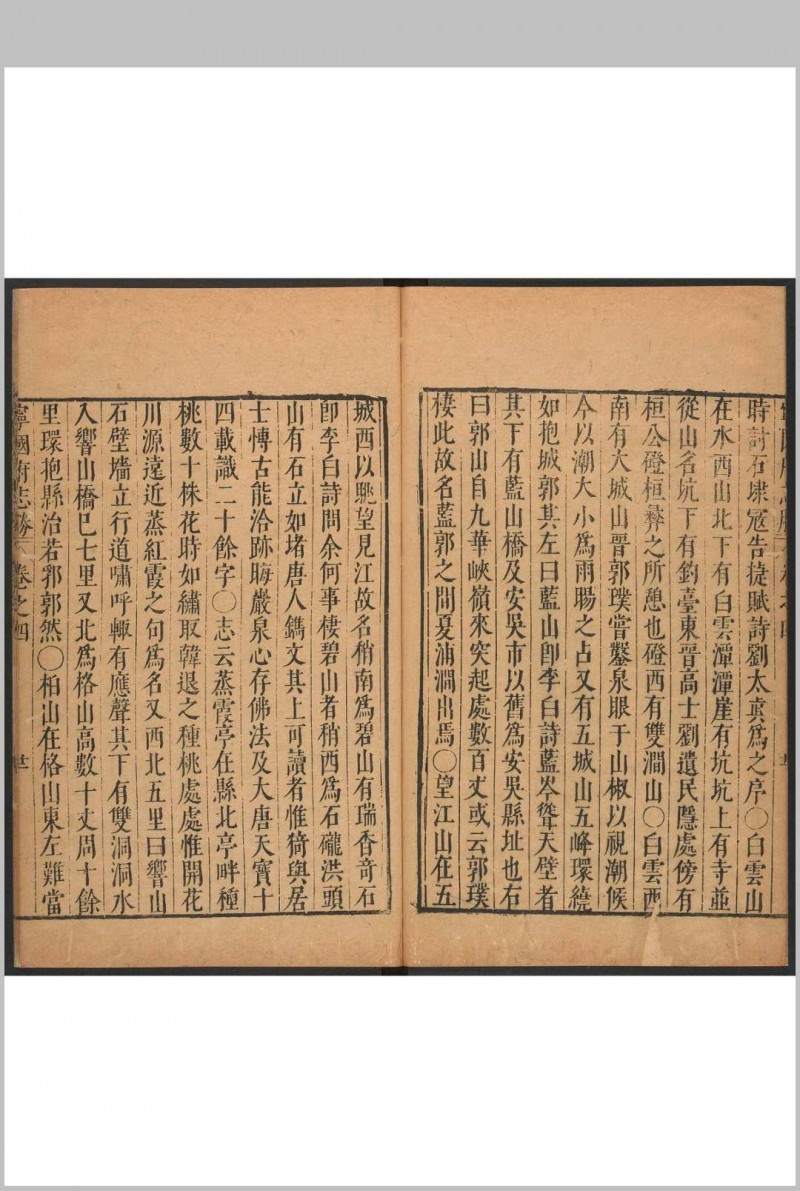 時討石埭寇告捷賦詩劉太真爲之序〇白雲山
在水西山北下有白雲潭潭崖有坑坑上有寺並
從山名坑下有釣臺東晉高士劉遺民隱處傍有
桓公磴桓彝之所憩也磴西有雙澗山〇白雲西
南有大城山晉郭璞嘗鑿泉眼于山椒以視潮候
今以潮大小爲雨暘之占又有五城山五峰環繞
如抱城郭其左曰藍山卽李白詩藍岑聳天壁者
其下有藍山橋及安吳市以舊爲安吳縣址也右
曰郭山自九華峽嶺來突起處數百丈或云郭璞
棲此故名藍郭之間夏浦澗出焉〇望江山在五
城西以眺望見江故名稍南爲碧山有瑞香奇石
卽李白詩問余何事棲碧山者稍西爲石礲洪頭
山有石立如堵唐人鐫文其上可讀者惟猗與居
士慱古能洽跡晦巖泉心存佛法及大唐天寶十
四載識二十餘字〇志云蒸霞亭在縣北亭畔種
桃數十株花時如繡取韓退之種桃處處惟開花
川源遠近蒸紅霞之句爲名又西北五里曰響山
石壁墻立行道嘯呼輙有應聲其下有雙洞洞水
入響山橋巳七里又北爲格山高數十丈周十餘
里環抱縣治若郛郭然〇柏山在格山東左難當
寧國府志勝 卷之四